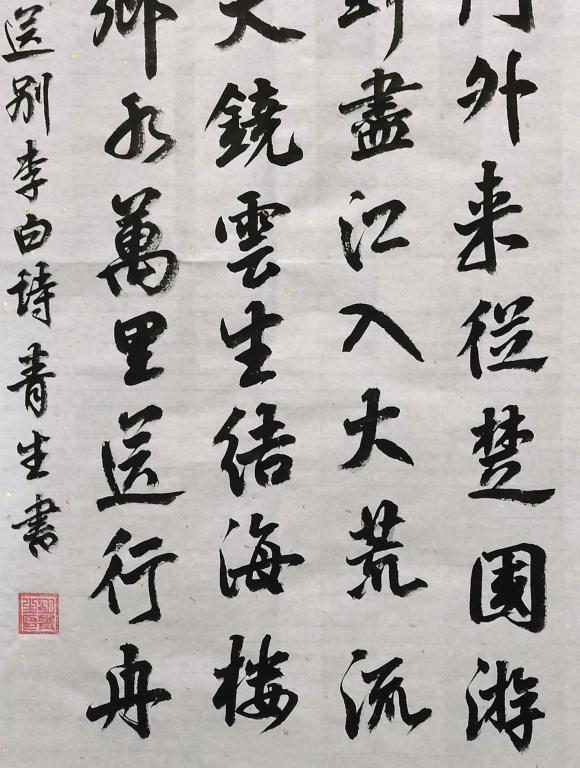 外来從楚國游
盡江入大荒流
天鏡雲生結海樓
鄉水萬里送行舟
送别李白詩青生書